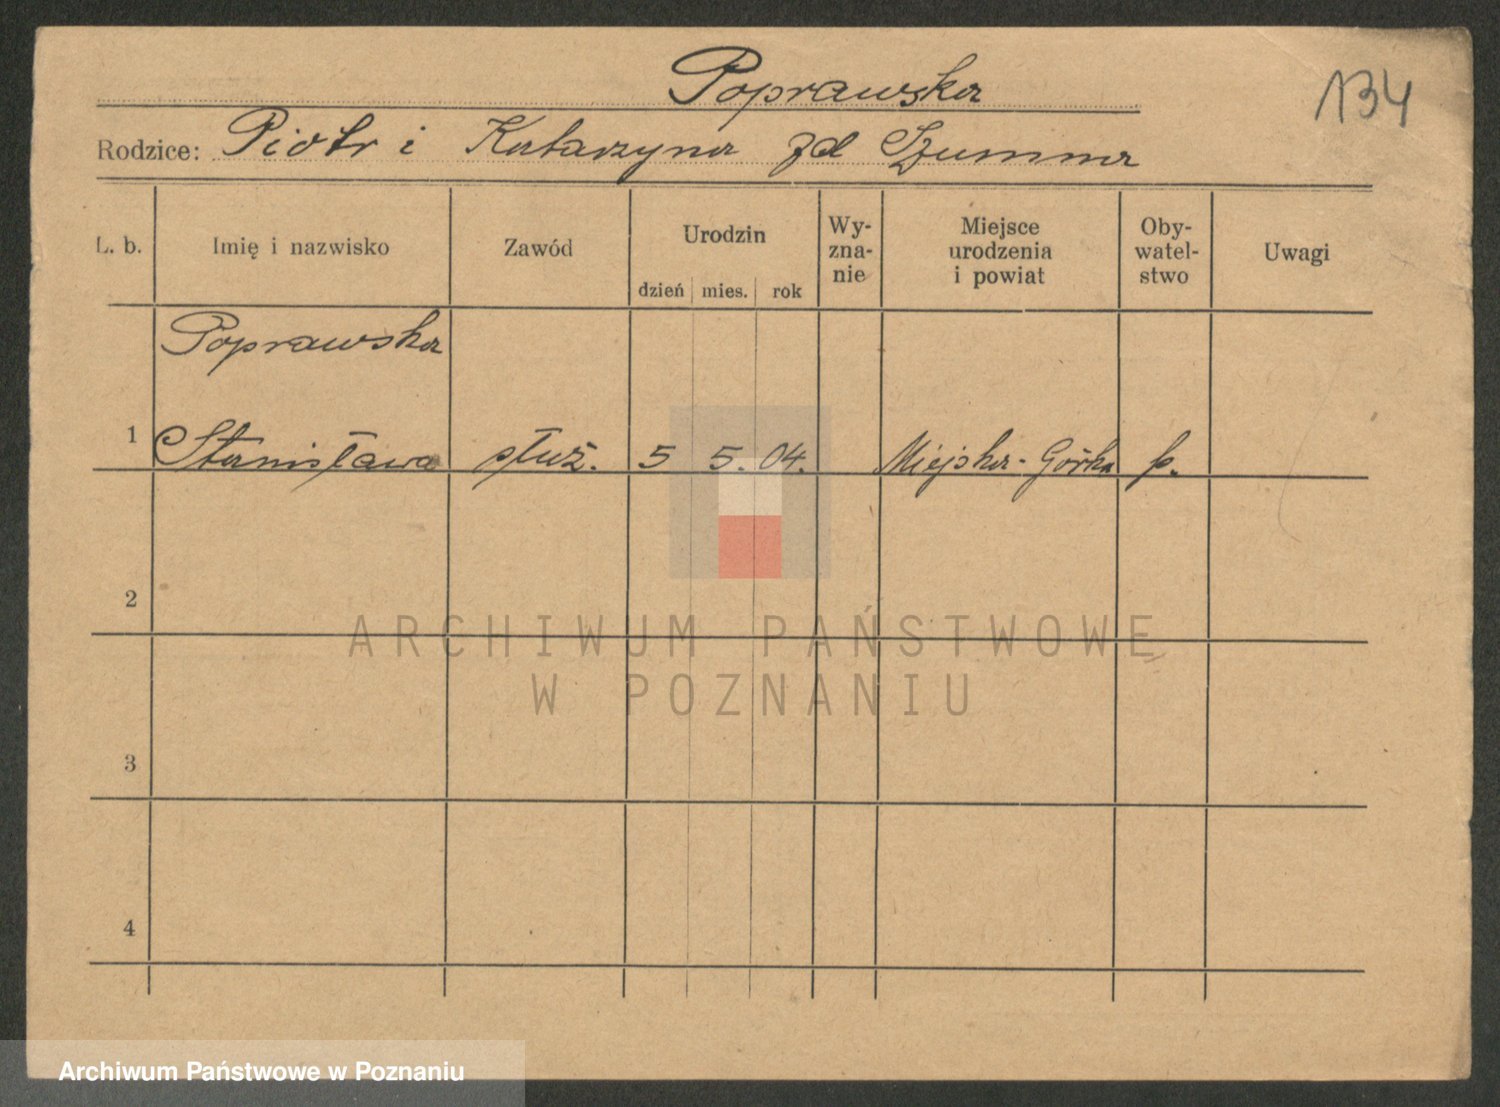 Poprawska
134
Rodzice: Piotr i Katarzyna zd Szumna
L. b.
Imię i nazwisko
Zawód
Urodzin
dzień mies. rok
Wy-
zna-
nie
Miejsce
urodzenia
i powiat
Oby-
watel-
stwo
Uwagi
Poprawska
1 Stanisława służ. 5 5. 04. Miejska-Górka p.
2
3
4
ARCHIWUM PAŃSTWOWE
W POZNANIU
Archiwum Państwowe w Poznaniu